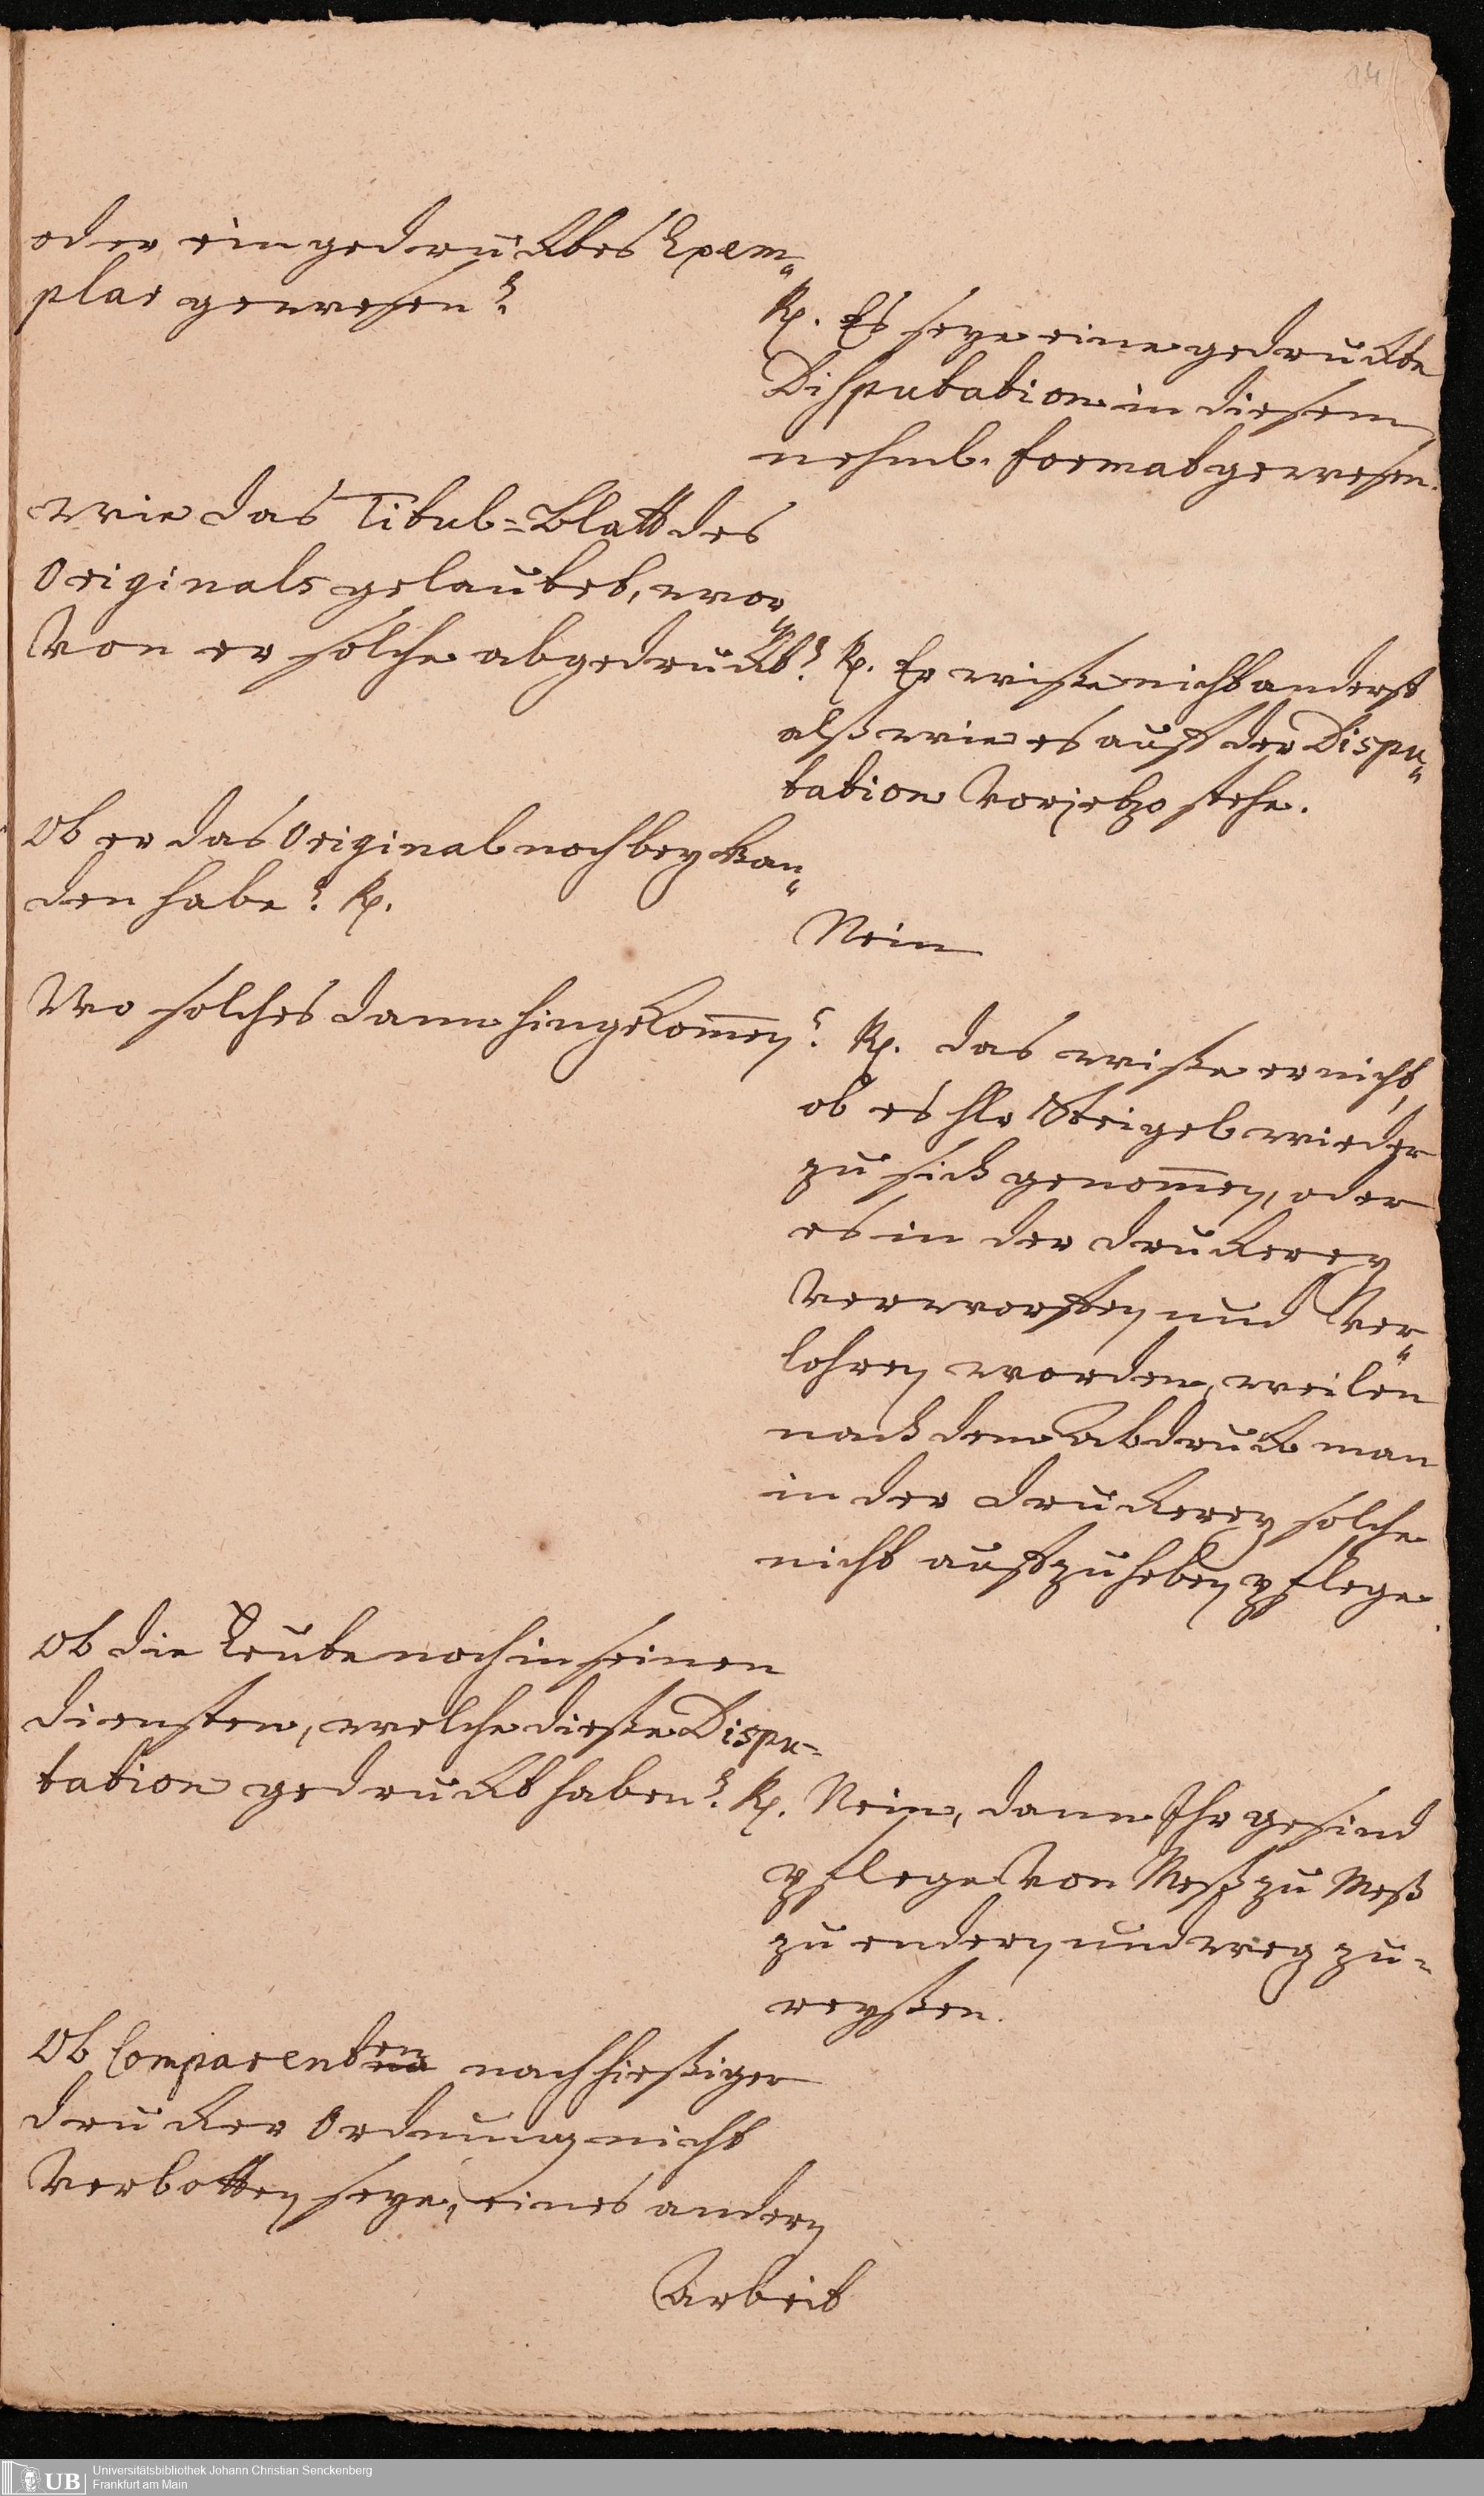 14
oder ein gedrucktes Exem„
plar gewesen?
Rp. Es seye eine gedruckte
Disputation in diesem
nehml. format gewesen.
wie das Titul=Blatt des
Originals gelautet, wor„
von er solche abgedruckt? Rp. Er wiße nicht anderst
alß wie es auff der Dispu„
tation vorjetzo stehe.
Ob er das Original noch bey han„
den habe? Rp.
Nein
Wo solches dann hingekom̄en? Rp. das wiße er nicht,
ob es Hr Steigel wieder
zu sich genom̄en, oder
es in der druckerey
verworffen und ver„
lohren worden, weilen
nach dem Abdruck man
in der druckerey solche
nicht auffzuheben pflege.
Ob die Leute noch in seinen
diensten, welche dieße Dispu=
tation gedruckt haben? Rp. Nein, dann Ihr gesind
pflege von Meß zu Meß
zu endern und weg zu=
reyßen.
Ob Comparenten nach hießiger
drucker Ordnung nicht
verbotten seye, eines andern
Arbeit
UB
Universitätsbibliothek Johann Christian Senckenberg
Frankfurt am Main